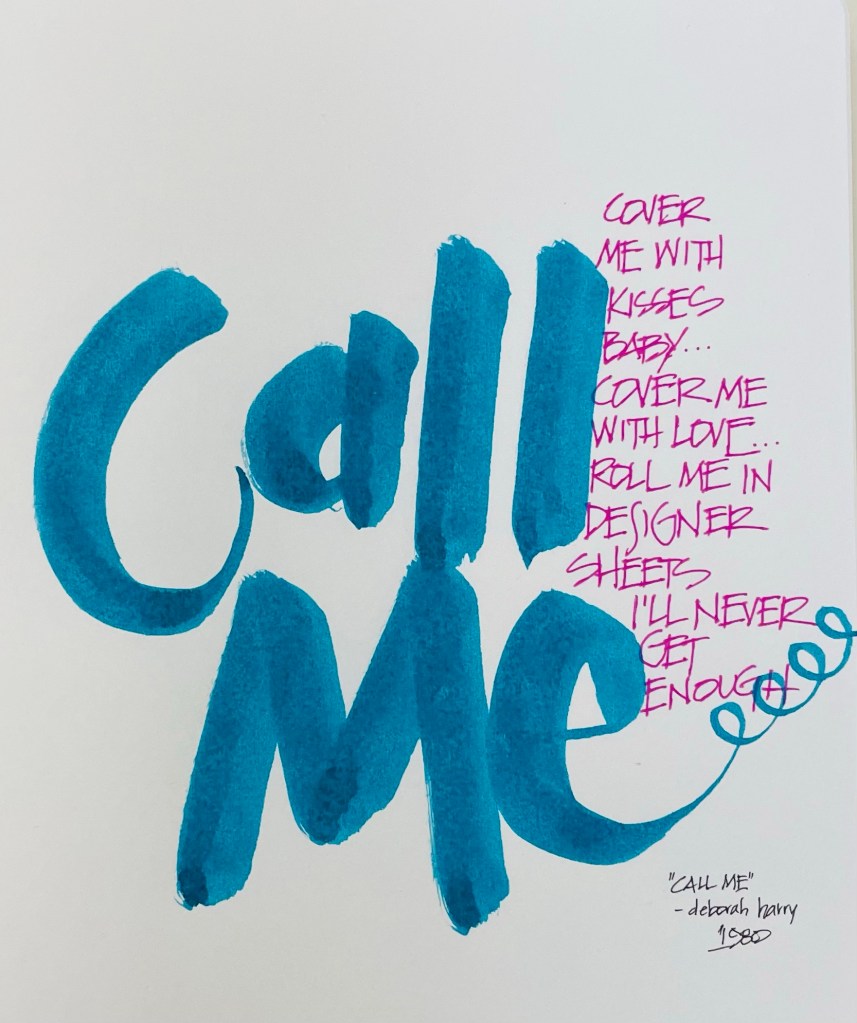 Call
Me
COVER
ME WITH
KISSES
BABY...
COVER ME
WITH LOVE...
ROLL ME IN
DESIGNER
SHEETS
I'LL NEVER
GET
ENOUGH
"CALL ME"
- deborah harry
1980